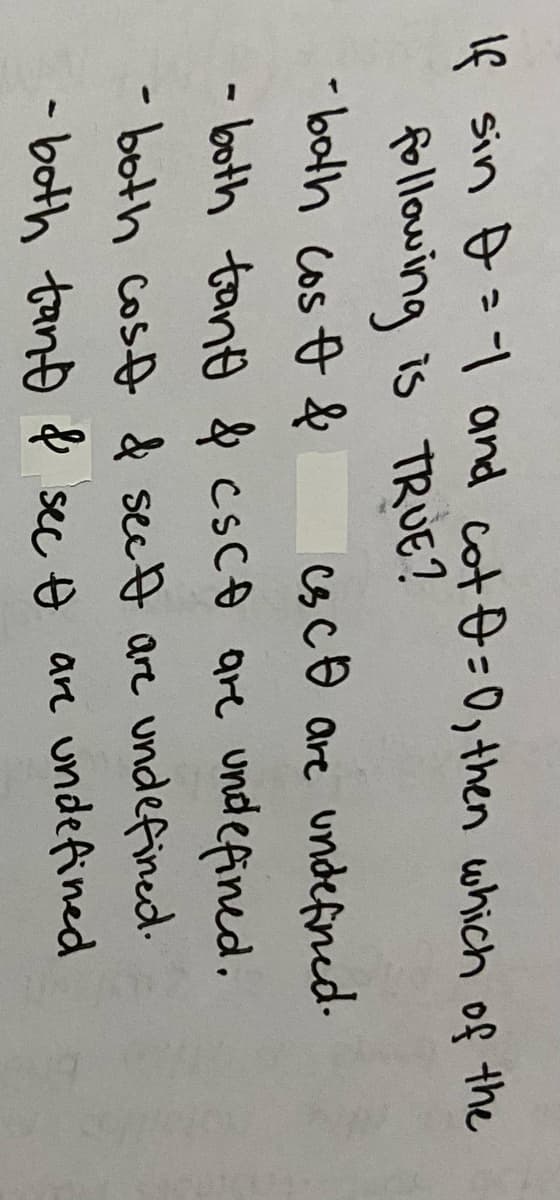 If sin θ = -1 and cot θ = 0, then which of the
following is TRUE?
- both cos θ & csc θ are undefined.
- both tan θ & csc θ are undefined.
- both cos θ & sec θ are undefined.
- both tan θ & sec θ are undefined